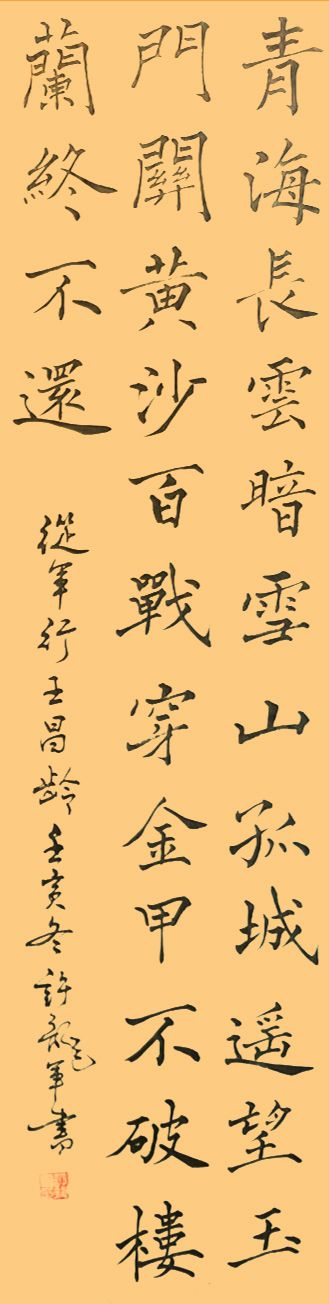 青海長雲暗雪山孤城遥望玉
門關黄沙百戰穿金甲不破樓
蘭終不還
從軍行王昌齡壬寅冬許龍軍書